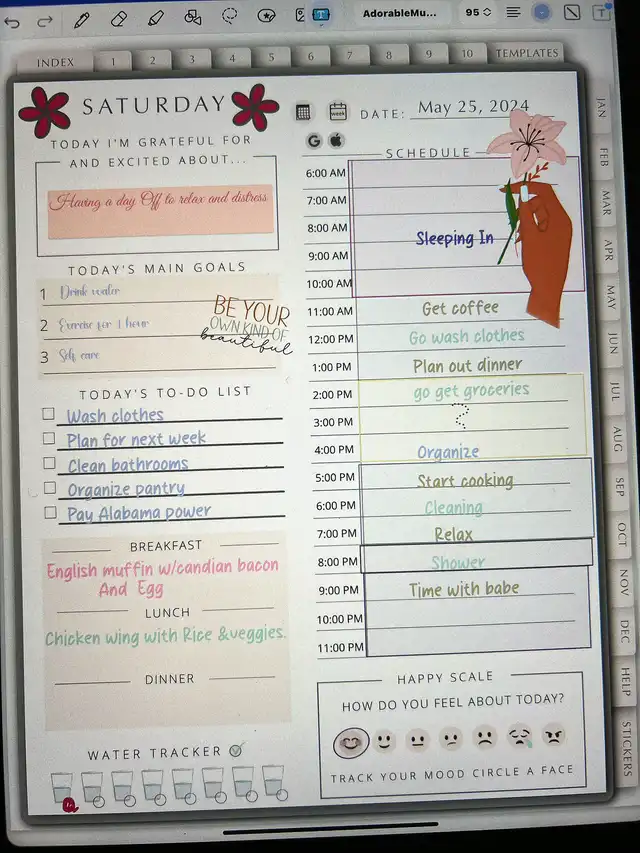 AdorableMu...
95
INDEX 1 2 3 4 5 6 7 8 9 10 TEMPLATES
SATURDAY
TODAY I'M GRATEFUL FOR
AND EXCITED ABOUT...
Having a day Off to relax and distress
TODAY'S MAIN GOALS
1 Drink water
2 Exercise for 1 hour
3 Self care
BE YOUR
OWN KIND OF
beautiful
TODAY'S TO-DO LIST
Wash clothes
Plan for next week
Clean bathrooms
Organize pantry
Pay Alabama power
BREAKFAST
English muffin w/candian bacon
And Egg
LUNCH
Chicken wing with Rice &veggies.
DINNER
WATER TRACKER
week
DATE: May 25, 2024
G
SCHEDULE
6:00 AM
7:00 AM
8:00 AM Sleeping In
9:00 AM
10:00 AM
11:00 AM Get coffee
12:00 PM Go wash clothes
1:00 PM Plan out dinner
2:00 PM go get groceries
3:00 PM
4:00 PM Organize
5:00 PM Start cooking
6:00 PM Cleaning
7:00 PM Relax
8:00 PM Shower
9:00 PM Time with babe
10:00 PM
11:00 PM
HAPPY SCALE
HOW DO YOU FEEL ABOUT TODAY?
TRACK YOUR MOOD CIRCLE A FACE
JAN
FEB
MAR
APR
MAY
JUN
JUL
AUG
SEP
OCT
NOV
DEC
HELP
STICKERS